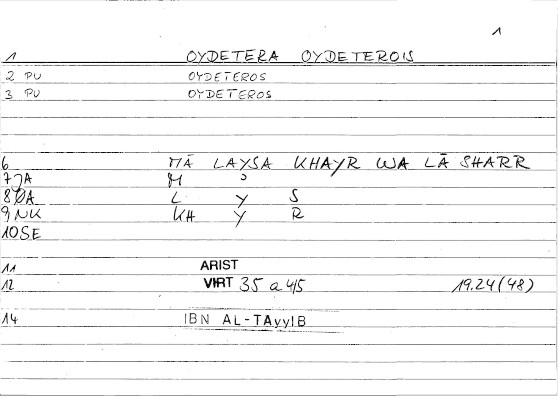 1
1 OYDETERA OYDETEROIS
2 PU OYDETEROS
3 PU OYDETEROS
6 MĀ LAYSA KHAYR WA LĀ SHARR
7 JA M ᵓ
8 ØA L Y S
9 NK KH Y R
10 SE
11 ARIST
12 VIRT 35 a 4/5 19.24 (48)
14 IBN AL-TAyyIB